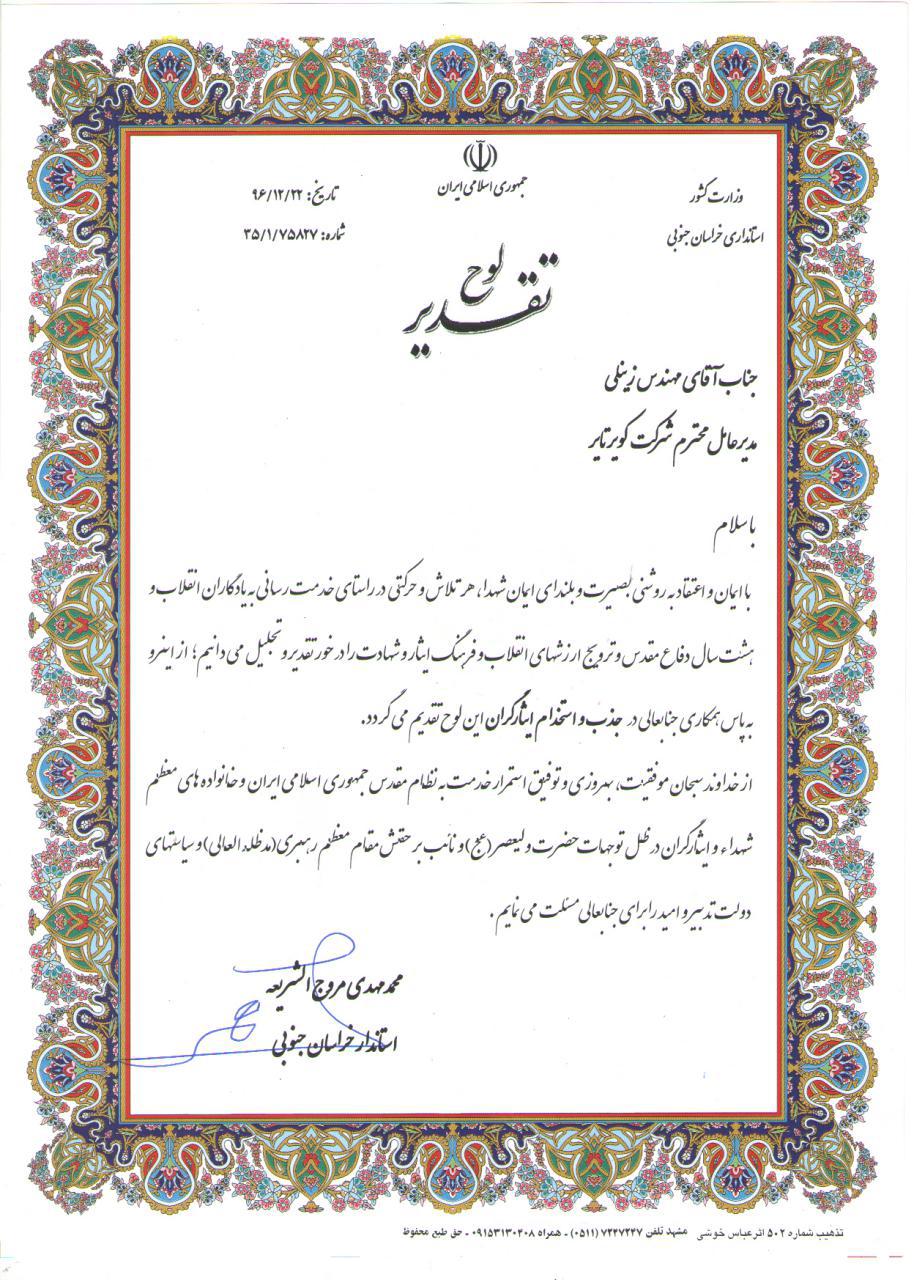 جمهوری اسلامی ایران
وزارت کشور
استانداری خراسان جنوبی
تاریخ: ۹۶/۱۲/۲۲
شماره: ۳۵/۱/۷۵۸۲۷
لوح
تقدیر
جناب آقای مهندس زینلی
مدیرعامل محترم شرکت کویر تایر
با سلام
با ایمان و اعتقاد به روشنی بصیرت و بلندای ایمان شهدا، هر تلاش و حرکتی در راستای خدمت رسانی به یادگاران انقلاب و
هشت سال دفاع مقدس و ترویج ارزشهای انقلاب و فرهنگ ایثار و شهادت را در خور تقدیر و تجلیل می دانیم؛ از اینرو
به پاس همکاری جنابعالی در جذب و استخدام ایثارگران این لوح تقدیم می گردد.
از خداوند سبحان موفقیت، بهروزی و توفیق استمرار خدمت به نظام مقدس جمهوری اسلامی ایران و خانواده های معظم
شهداء و ایثارگران در ظل توجهات حضرت ولیعصر(عج) و نائب بر حقش مقام معظم رهبری(مدظله العالی) و سیاستهای
دولت تدبیر و امید را برای جنابعالی مسئلت می نمایم.
محمد مهدی مروج الشریعه
استاندار خراسان جنوبی
تذهیب شماره ۵۰۲ اثر عباس خوشی مشهد تلفن ۷۲۴۷۲۴۷ (۰۵۱۱) - همراه ۰۹۱۵۳۱۳۰۴۰۸ - حق طبع محفوظ